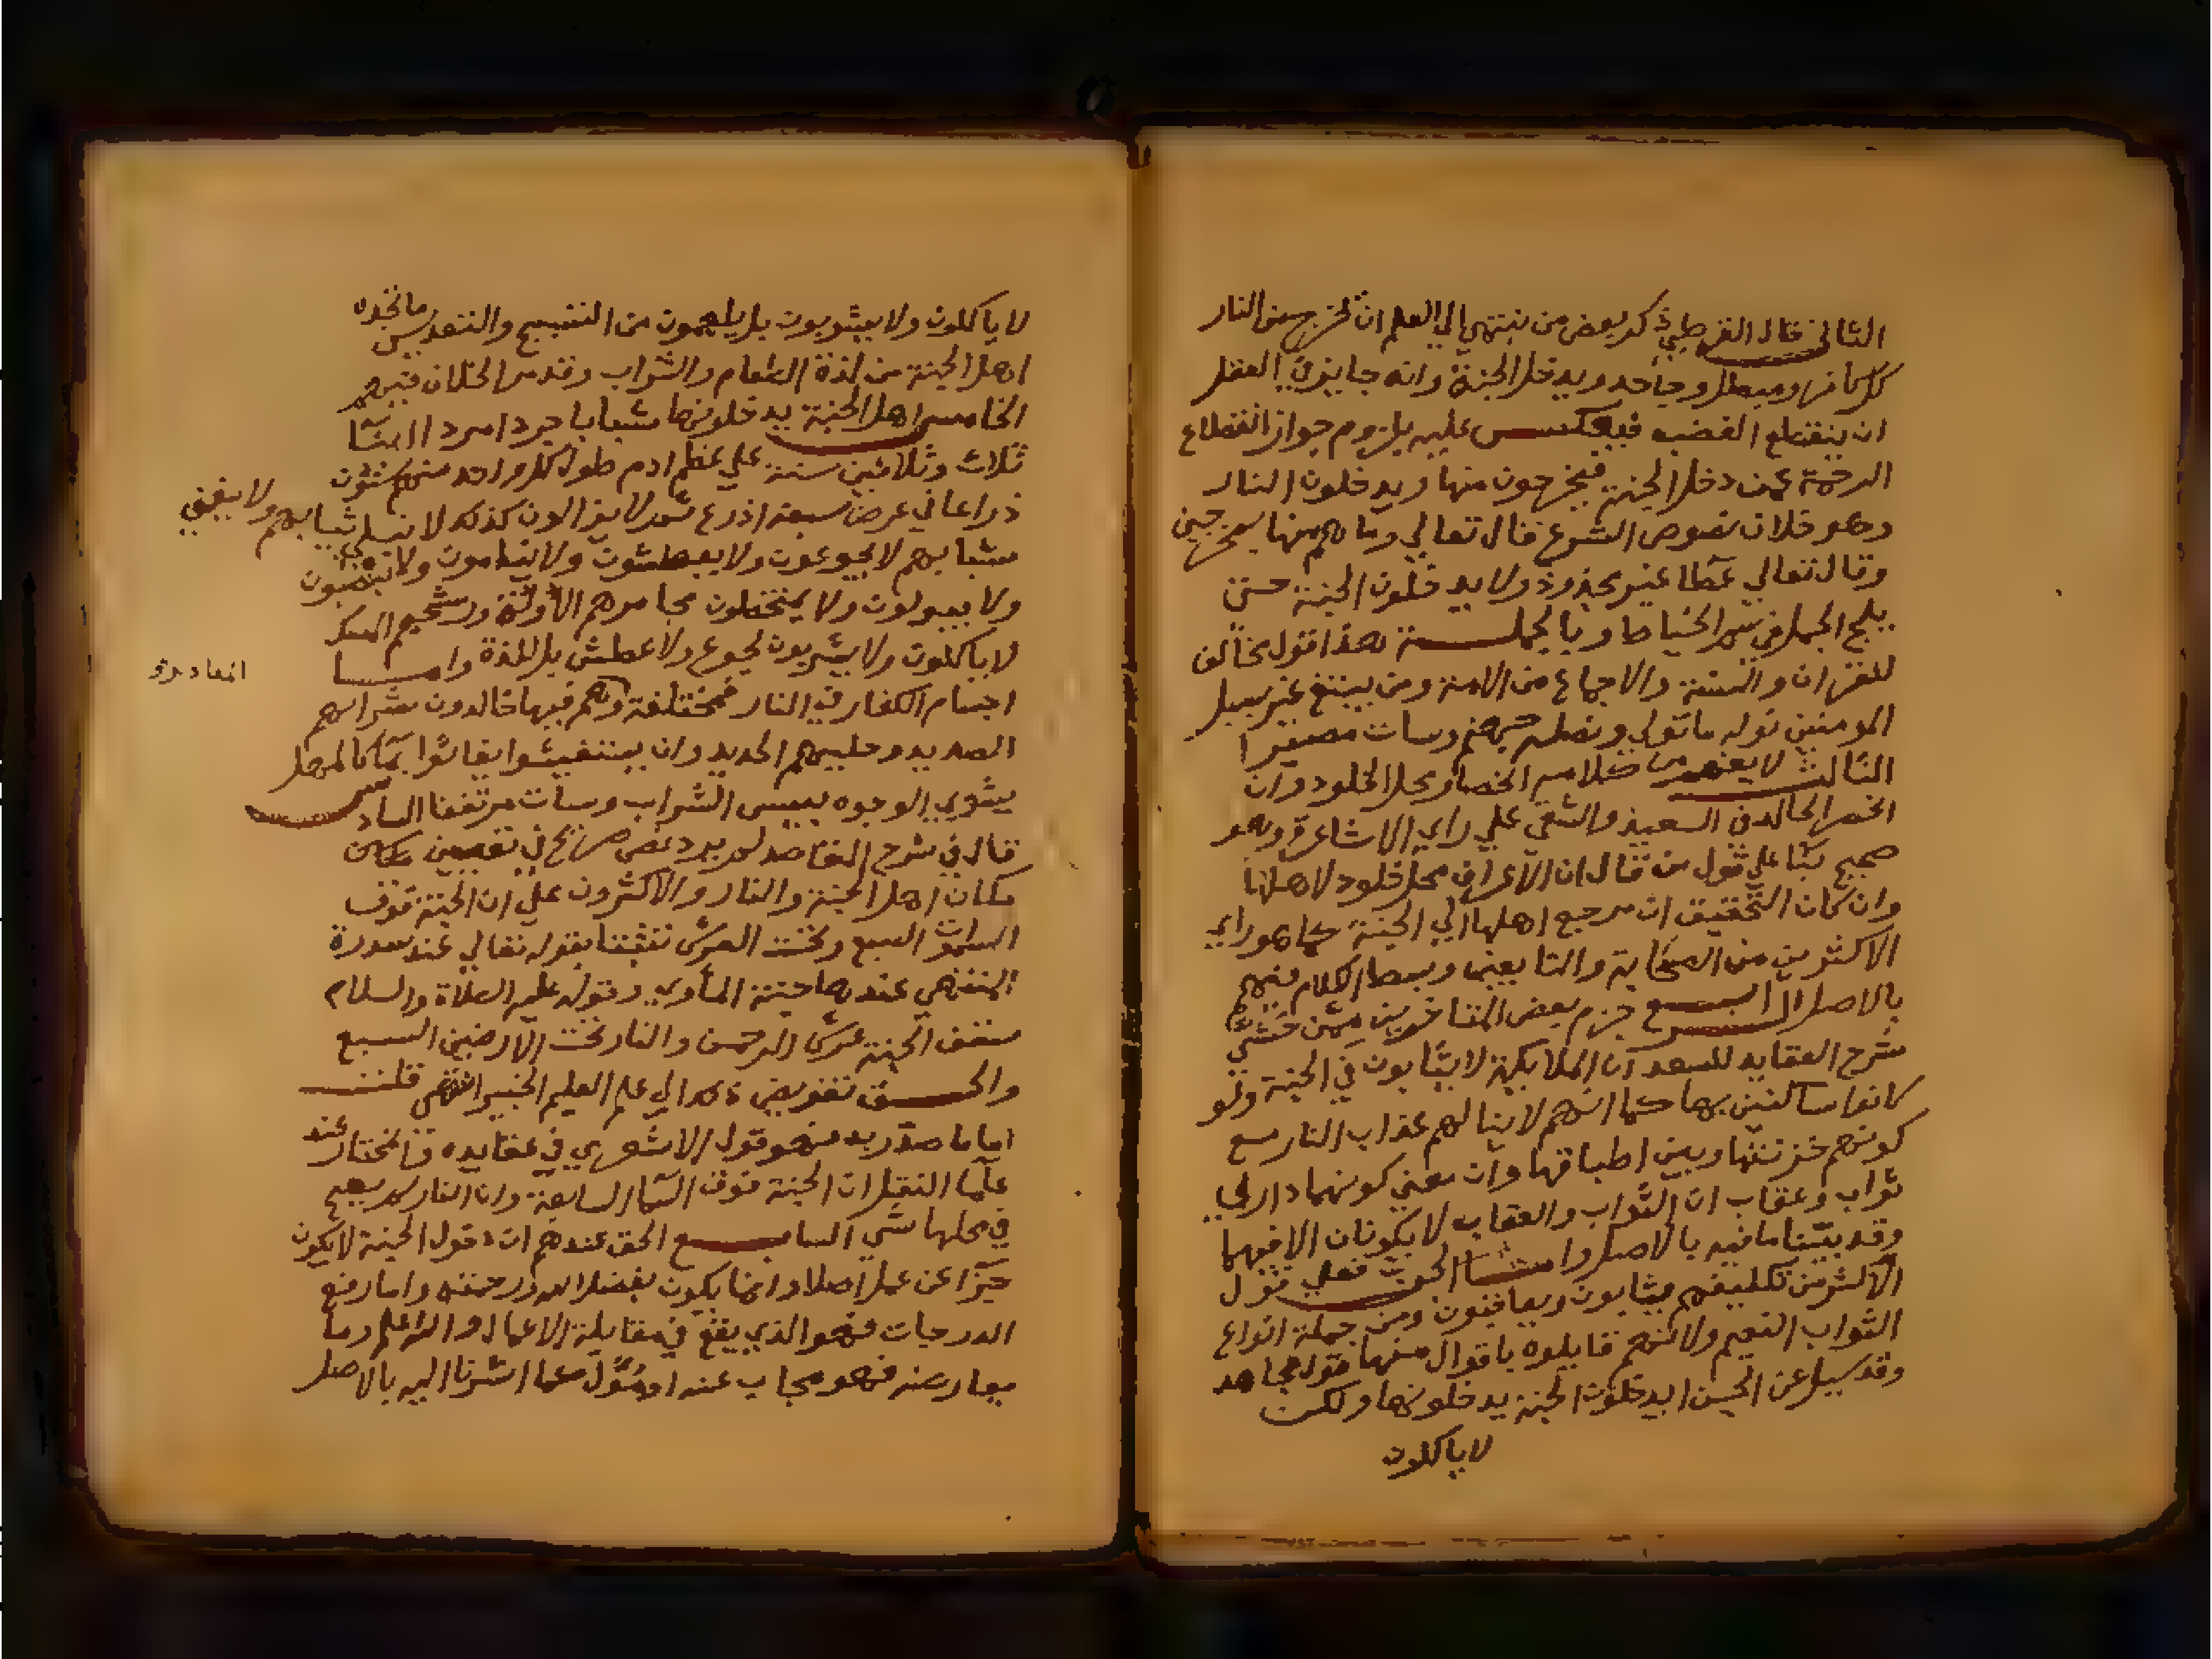 الثاني قال القرطبي ذكر بعض من ينتهي الي العلم انه يخرج من النار
كل كافر ومبطل وجاحد ويدخل الجنة وانه جايز في العقل
ان ينقطع الغضب فيعكس عليه يلزوم جواز انقطاع
الرحمة عمن دخل الجنة فيخرجون منها ويدخلون النار
وهو خلاف نصوص الشرع قال تعالي وما هم منها بمخرجين
وقال تعالي عطا غير مجذوذ ولا يدخلون الجنة حتي
يلج الجمل في سم الخياط وبالجملة هذا قول مخالف
للقران والسنة والاجماع من الامة ومن يبتغ غير سبيل
المومنين نوله ما تولي ونصله جهنم وسات مصيرا
الثالث لا يفهم من كلامه انحصار محل الخلود وان
انحصر الخالد في السعيد والشقي علي راي الاشاعرة وهو
صحيح بنا علي قول من قال ان الاعراف محل خلود لاهلها
وان كان التحقيق ان مرجع اهلها الي الجنة كما هو راي
الاكثرين من الصحابة والتابعين وبسط الكلام فيهم
بالاصل الرابع جزم بعض المتاخرين ممن حشي
شرح العقايد للسعد ان الملايكة لا يثابون في الجنة ولو
كانوا ساكنين بها كما انهم لا ينالهم عذاب النار مع
كونهم خزنتها وبين اطباقها وان معني كونهما داري
ثواب وعقاب ان الثواب والعقاب لا يكونان الا فيهما
وقد بينا ما فيه بالاصل واما الجن فعلي قول
الاكثر من تكليفهم يثابون ويعاقبون ومن جملة انواع
الثواب النعيم ولاكنهم قايلوه باقوال منها قول مجاهد
وقد سيل عن الجن ايدخلون الجنة يدخلونها ولكن
لا ياكلون
لا ياكلون ولا يشربون بل يلهمون من التسبيح والتقديس ما تجده
اهل الجنة من لذة الطعام والشراب وقد مر الخلاف فيهم
الخامس اهل الجنة يدخلونها شبابا جردا مردا ابنا
ثلاث وثلاثين سنة علي عظم ادم طول كل واحد منهم ستون
ذراعا في عرض سبعة اذرع ثم لا يزالون كذلك لا تبلي ثيابهم ولا يفني
شبابهم لا يجوعون ولا يعطشون ولا ينامون ولا
ولا يبولون ولا يمتخطون مجامرهم الألوة ورشحهم المسك
لا ياكلون ولا يشربون لجوع ولا عطش بل للذة واما
اجسام الكفار في النار فمختلفة وهم فيها خالدون شرابهم
الصديد وحليهم الحديد وان يستغيثوا يغاثوا بما كالمهل
يشوي الوجوه بيس الشراب وسات مرتفقا السادس
قال في شرح المقاصد لم يرد نص صريح في تعيين مكان
مكان اهل الجنة والنار والاكثرون علي ان الجنة فوق
السموات السبع وتحت العرش تثبتا بقوله تعالي عند سدرة
المنتهي عندها جنة المأوي وقوله عليه الصلاة والسلام
سقف الجنة عرش الرحمن والنار تحت الارضين السبع
والحق تفويض ذلك الي علم العليم الخبير انتهي قلت
اما ما صدر به فهو قول الاشعري في عقايده والمختار عند
علما النقل ان الجنة فوق السما السابعة وان النار لم يصح
في محلها شي السابع الحق عندهم ان دخول الجنة لا يكون
جزا عن عمل اصلا وانما يكون بفضل الله ورحمته واما رفع
الدرجات فهو الذي يقع في مقابلة الاعمال والله اعلم وما
يعارضه فهو مجاب عنه او مؤول مما اشرنا اليه بالاصل